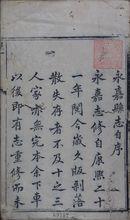 永嘉縣志自序
永嘉志修自康熙二十
一年閱今歲久版剝落
散失存者不及十之三
人家亦無完本余下車
以後即有志重修而未